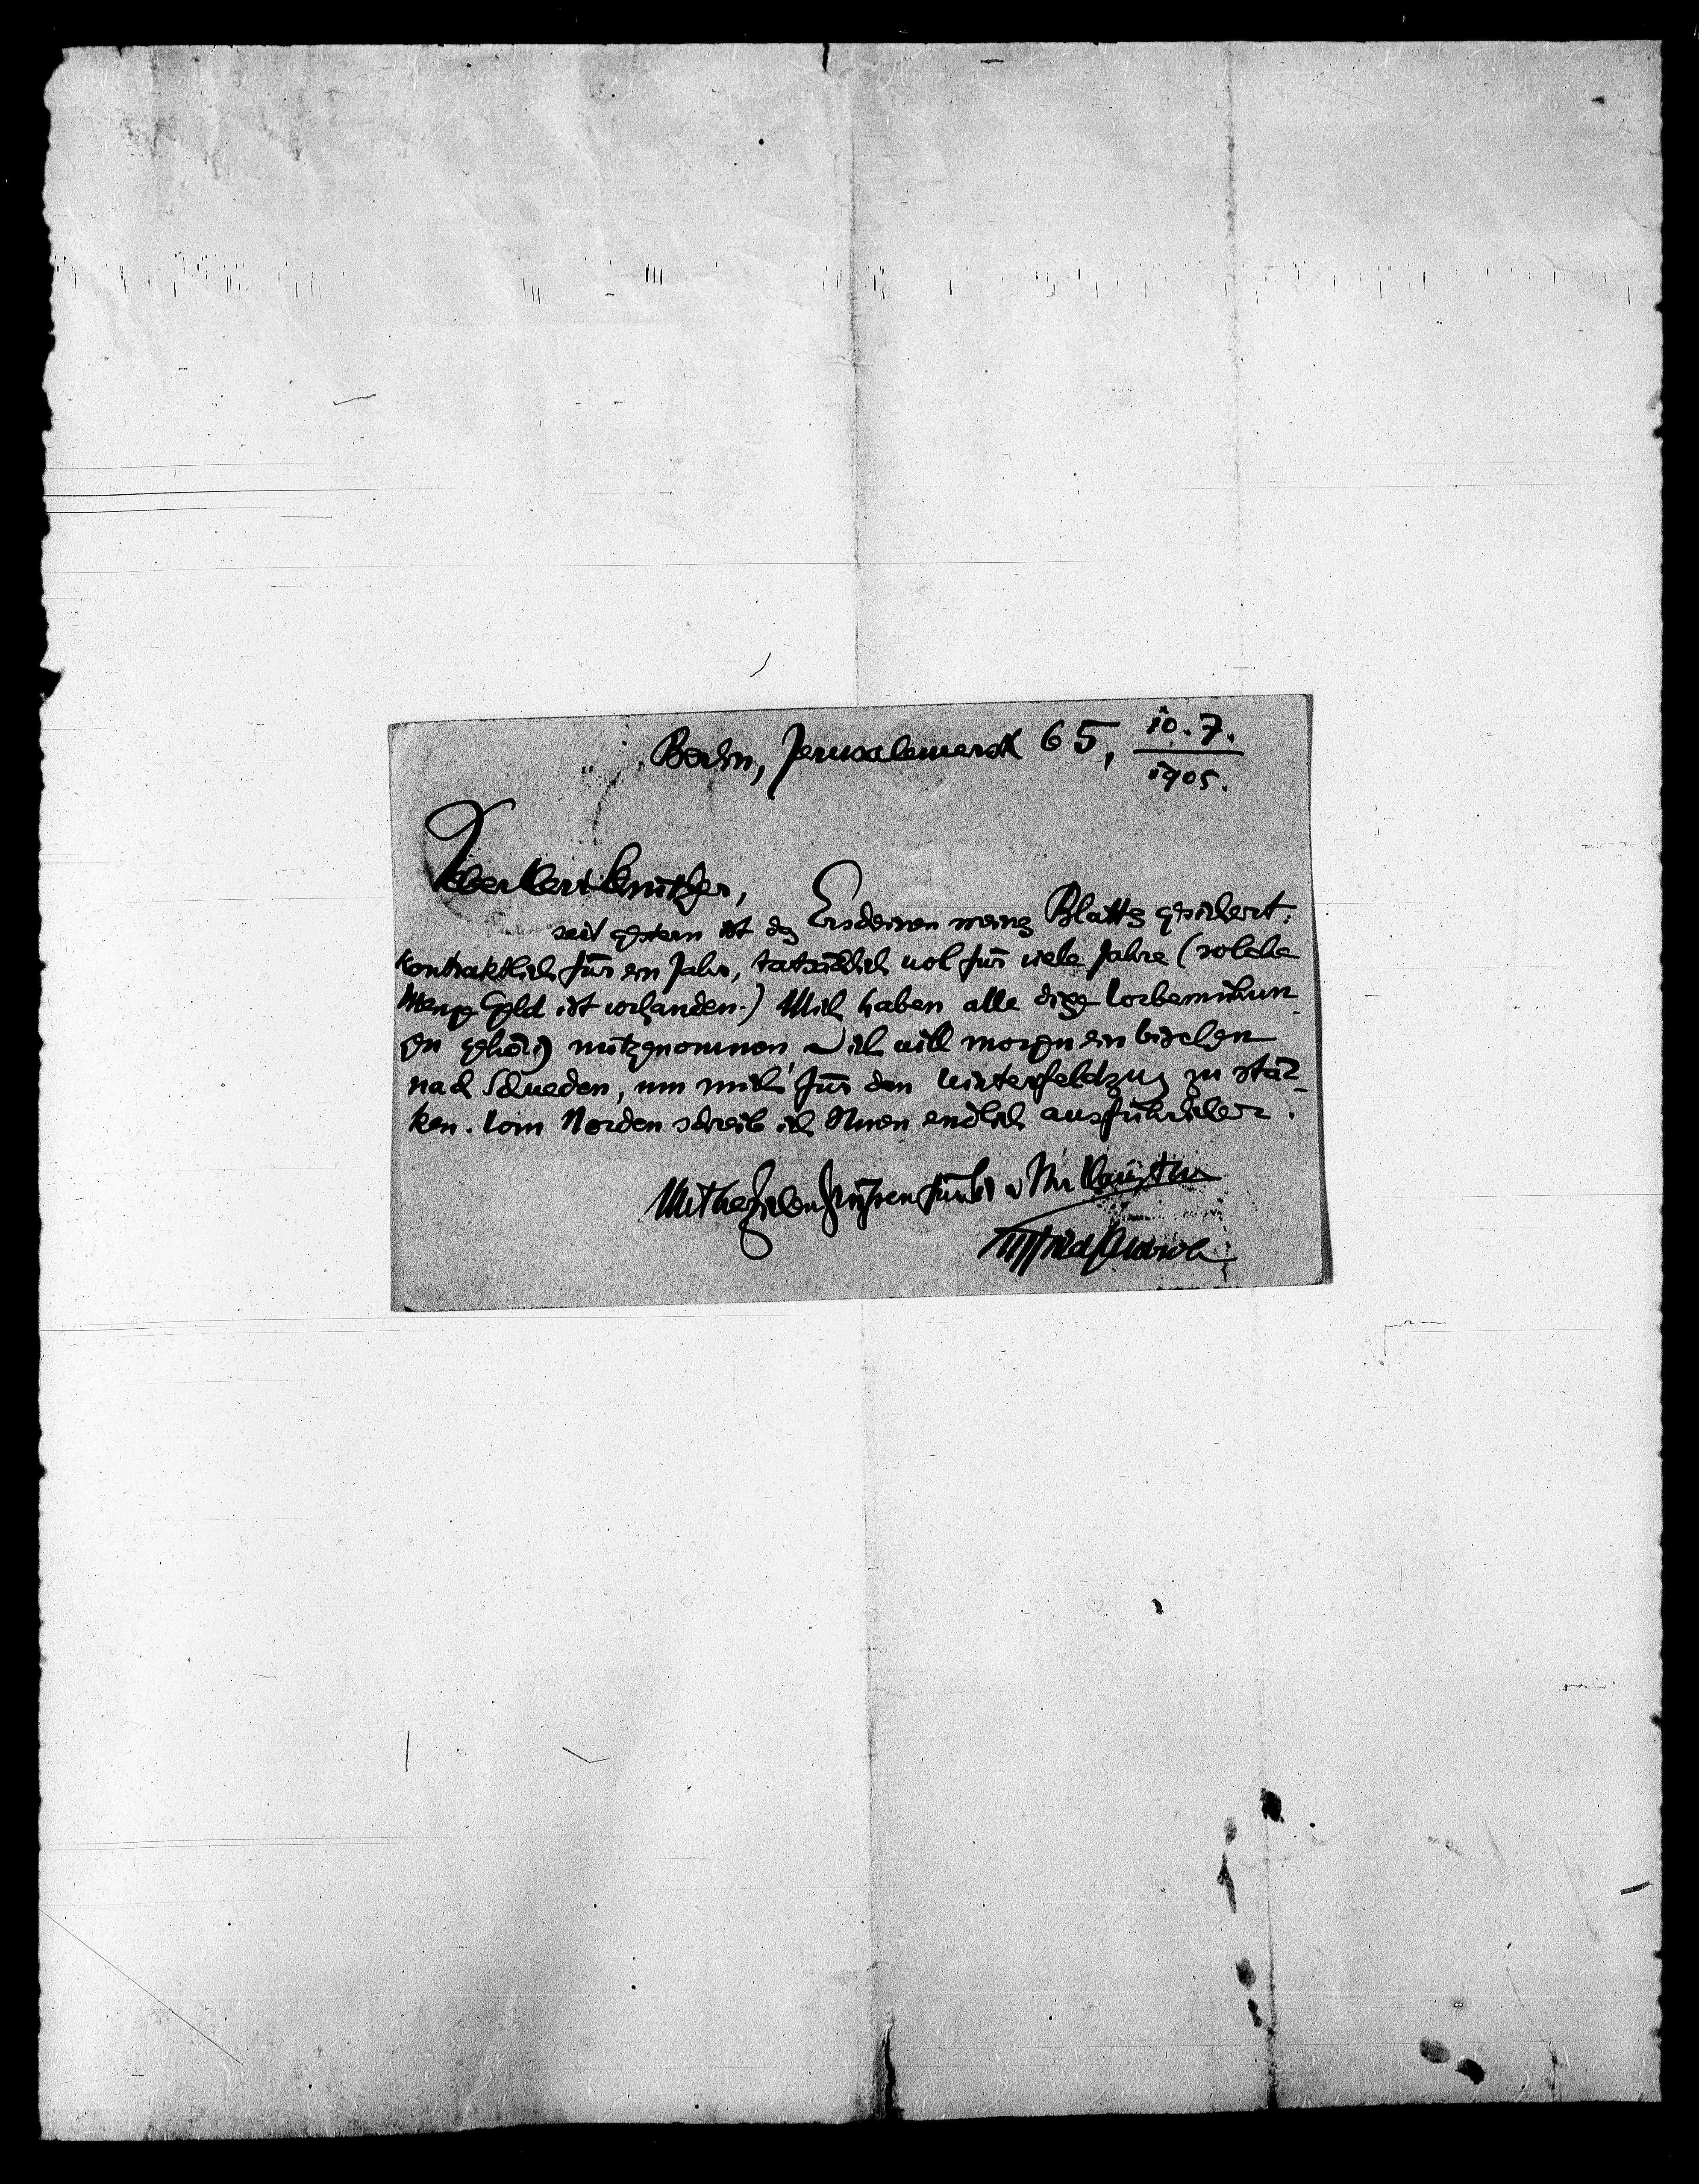 Berlin, Jerusalemerstr 65, 10.7.
1905.
Lieber Herr
seit gestern ist das Erscheinen meines Blattes gesichert:
kontraktlich für ein Jahr, tatsächlich wol für viele Jahre (solche
Menge Geld ist vorhanden.) Mich haben alle diese Vorbemühun-
gen gehörig mitgenommen. Ich will morgen ein bischen
nach Schweden, um mich für den Winterfeldzug zu stär-
ken. Vom Norden schreib ich Ihnen endlich ausführlicher.
Mit herzlichen Grüssen
Siegfried Jacobsohn